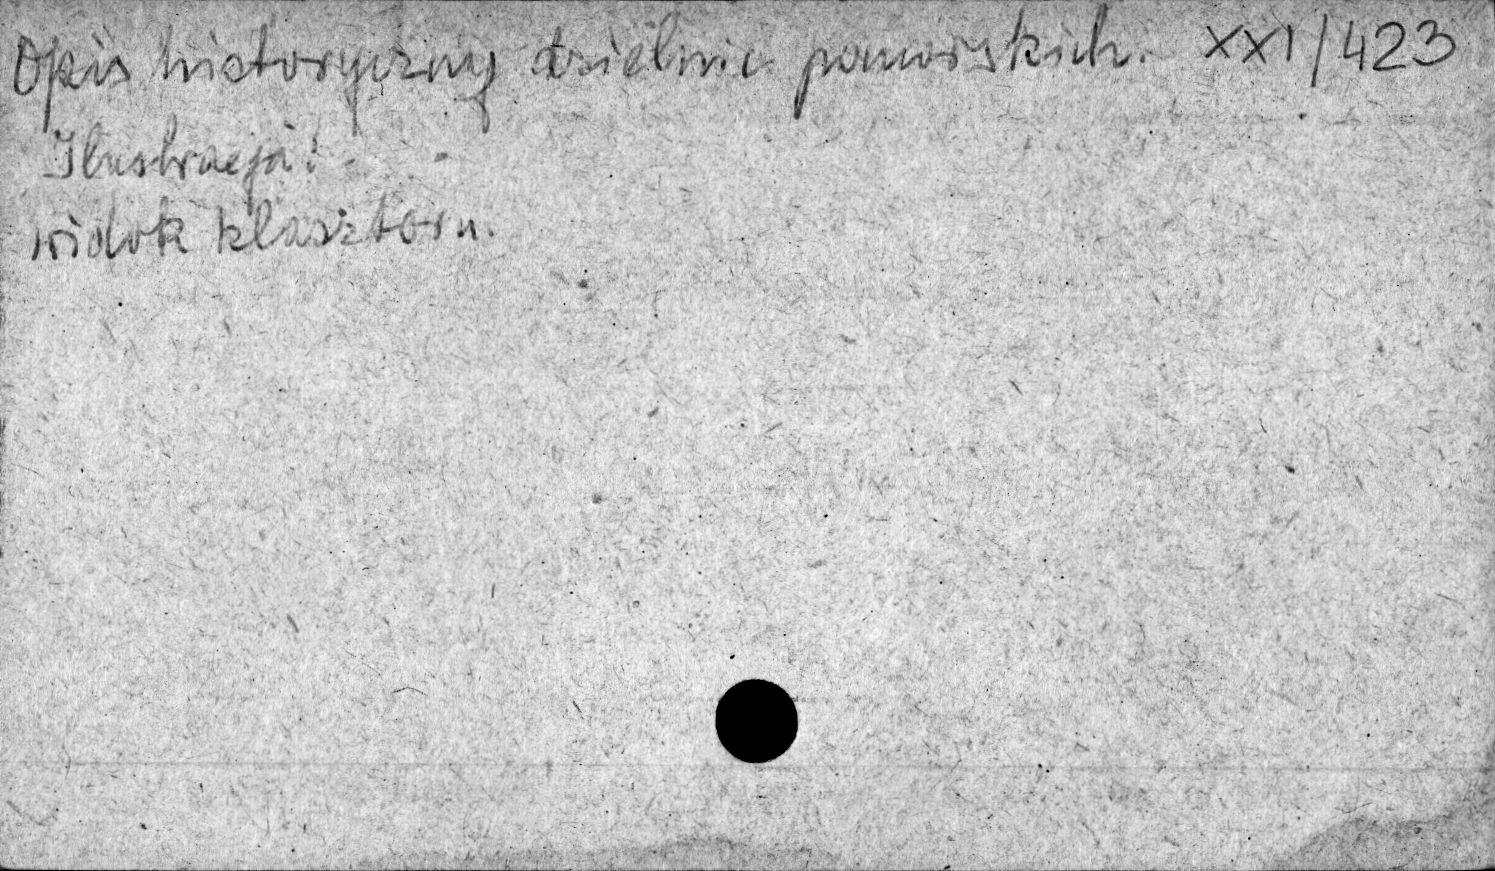 Opis historyczny dzielnic pomorskich. XXI/423
Ilustracja:
widok klasztoru.